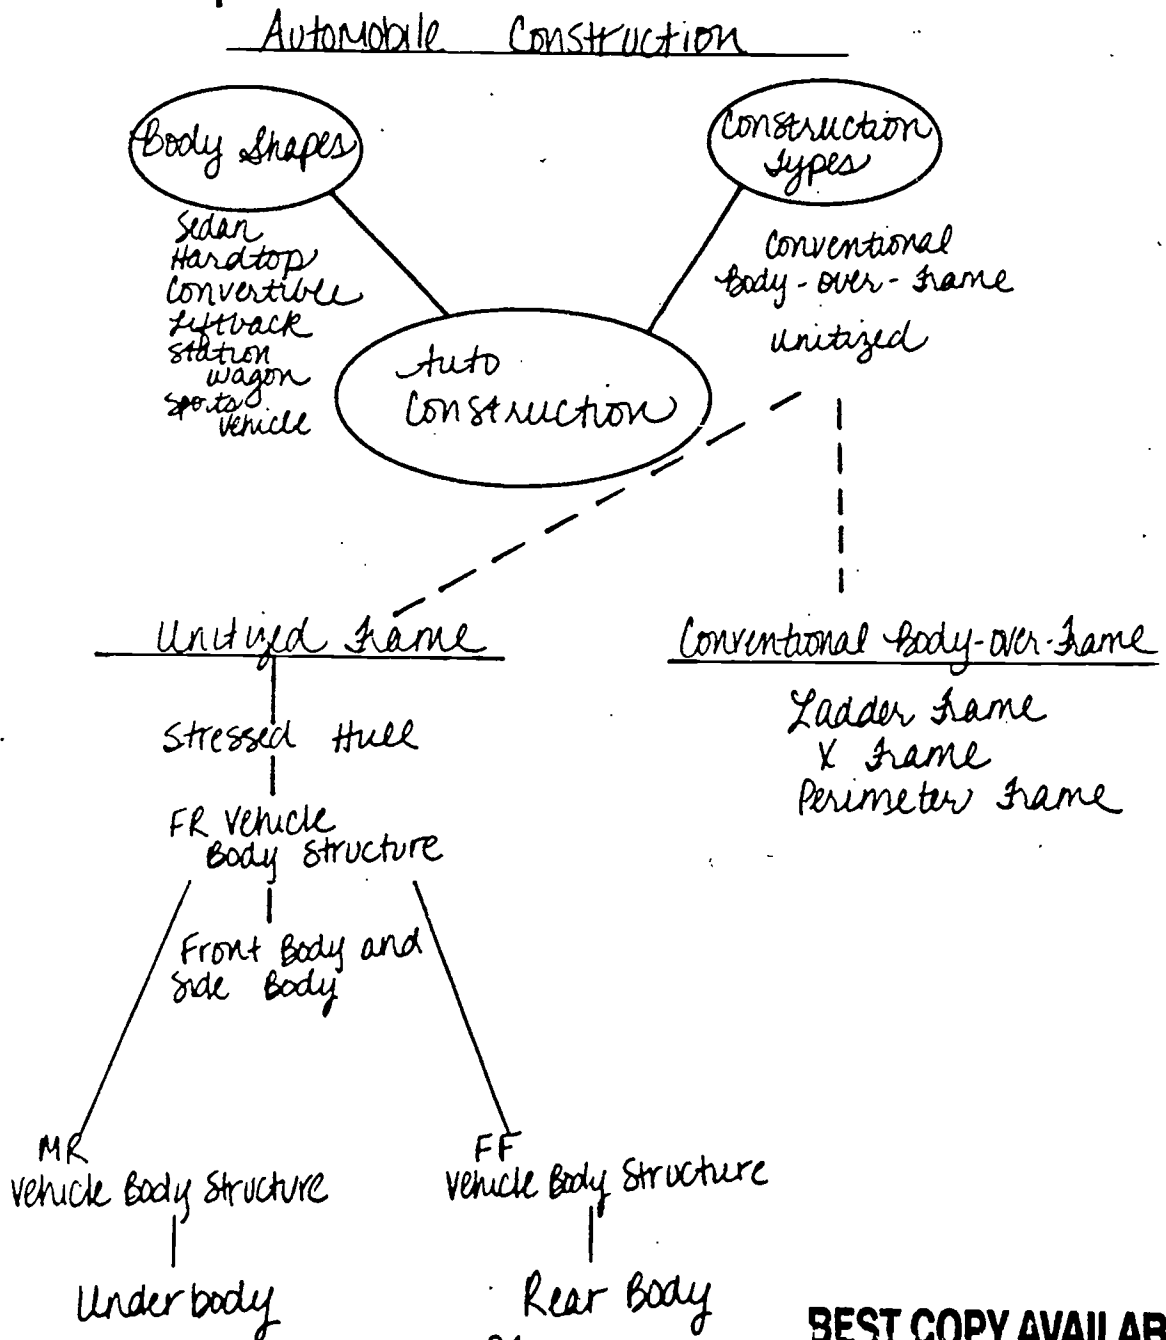 Automobile Construction
Body Shapes
Sedan
Hardtop
Convertible
Liftback
Station
wagon
Sports
Vehicle
Construction
Types
Conventional
Body-over-Frame
Unitized
Auto
Construction
Unitized Frame
Stressed Hull
FR Vehicle
Body Structure
Front Body and
Side Body
MR
Vehicle Body Structure
Underbody
FF
Vehicle Body Structure
Rear Body
Conventional Body-over-Frame
Ladder Frame
X Frame
Perimeter Frame
BEST COPY AVAILAB